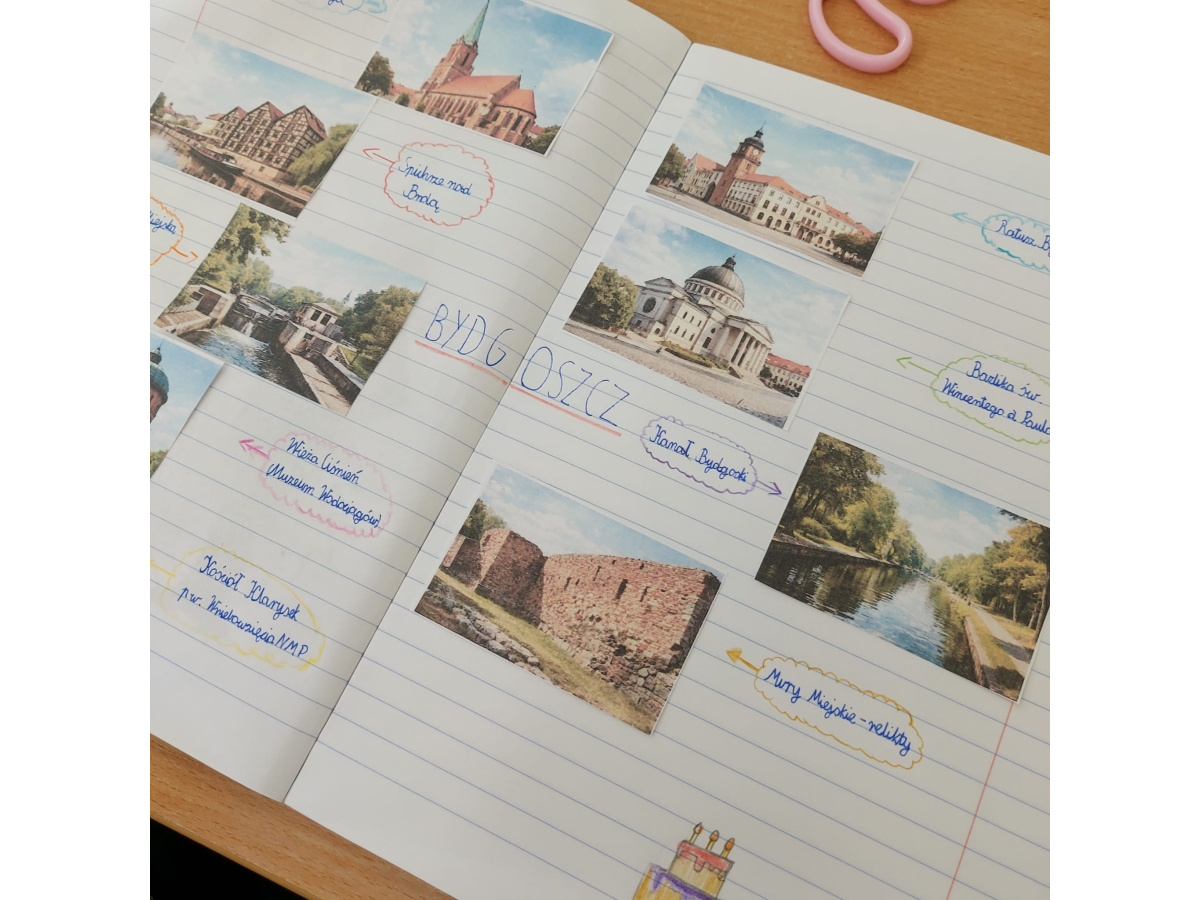 Spichrze nad
Brdą
BYDGOSZCZ
Wieża Ciśnień
Muzeum Wodociągów
Kościół Klarysek
p.w. Wniebowzięcia NMP
Ratusz
Bazlika św.
Wincentego a Paulo
Kanał Bydgoski
Mury Miejskie - relikty